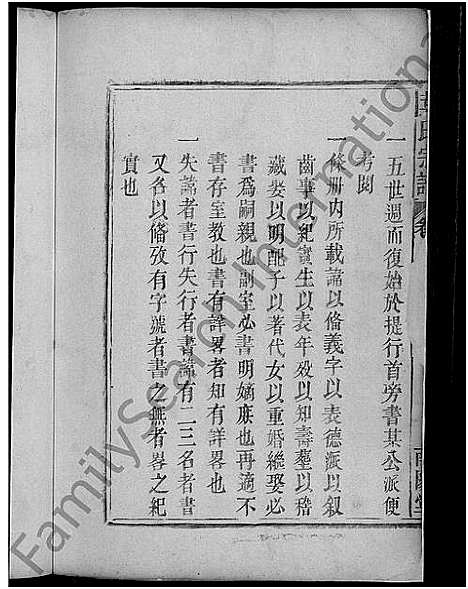 一五世週而復始於提行首旁書某公派便
考閱
一條冊内所載諱以脩義字以表德派以叙
齒事以紀實生以表年歿以知壽塟以稽
藏娶以明配子以著代女以重婚繼娶必
書爲嗣親也副室必書明嫡庶也再適不
書存室教也書有詳畧者知有詳畧也
一失諱者書行失行者書諱有二三名者書
又各以脩攷有字號者書之無者畧之紀
實也
氏宗譜
FamilySearch International